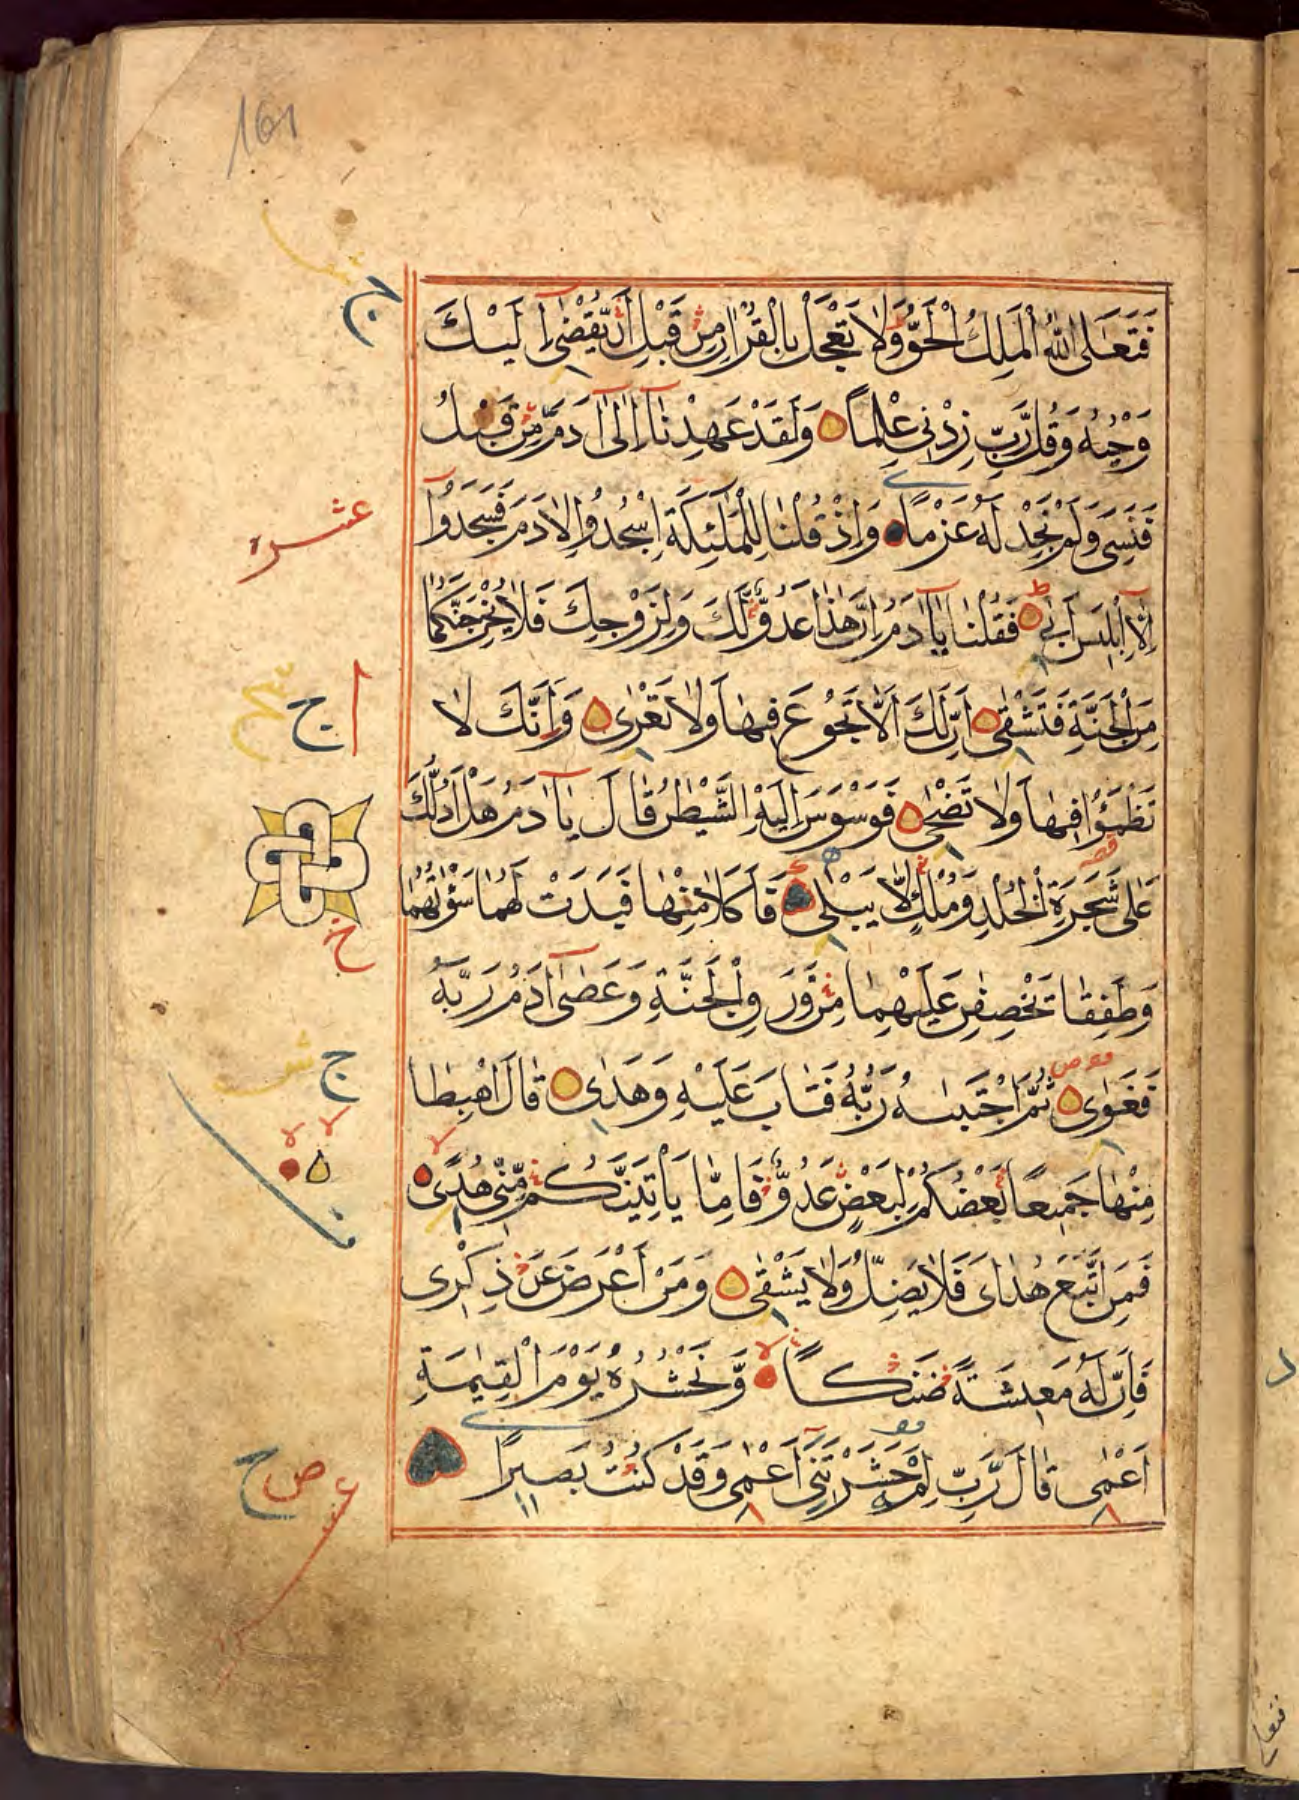 161
فَتَعٰلَى اللّٰهُ الْمَلِكُ الْحَقُّ وَلَا تَعْجَلْ بِالْقُرْاٰنِ مِنْ قَبْلِ اَنْ يُّقْضٰٓى اِلَيْكَ
وَحْيُهٗ وَقُلْ رَّبِّ زِدْنِى عِلْمًا وَلَقَدْ عَهِدْنَآ اِلٰٓى اٰدَمَ مِنْ قَبْلُ
فَنَسِىَ وَلَمْ نَجِدْ لَهٗ عَزْمًا وَاِذْ قُلْنَا لِلْمَلٰٓئِكَةِ اسْجُدُوْا لِاٰدَمَ فَسَجَدُوْٓا
عشره
اِلَّآ اِبْلِيْسَ اَبٰى فَقُلْنَا يٰٓاٰدَمُ اِنَّ هٰذَا عَدُوٌّ لَّكَ وَلِزَوْجِكَ فَلَا يُخْرِجَنَّكُمَا
مِنَ الْجَنَّةِ فَتَشْقٰى اِنَّ لَكَ اَلَّا تَجُوْعَ فِيْهَا وَلَا تَعْرٰى وَاَنَّكَ لَا
تَظْمَؤُا فِيْهَا وَلَا تَضْحٰى فَوَسْوَسَ اِلَيْهِ الشَّيْطٰنُ قَالَ يٰٓاٰدَمُ هَلْ اَدُلُّكَ
عَلٰى شَجَرَةِ الْخُلْدِ وَمُلْكٍ لَّا يَبْلٰى فَاَكَلَا مِنْهَا فَبَدَتْ لَهُمَا سَوْءٰتُهُمَا
وَطَفِقَا يَخْصِفٰنِ عَلَيْهِمَا مِنْ وَّرَقِ الْجَنَّةِ وَعَصٰٓى اٰدَمُ رَبَّهٗ
فَغَوٰى ثُمَّ اجْتَبٰىهُ رَبُّهٗ فَتَابَ عَلَيْهِ وَهَدٰى قَالَ اهْبِطَا
مِنْهَا جَمِيْعًا بَعْضُكُمْ لِبَعْضٍ عَدُوٌّ فَاِمَّا يَاْتِيَنَّكُمْ مِّنِّى هُدًى
فَمَنِ اتَّبَعَ هُدَاىَ فَلَا يَضِلُّ وَلَا يَشْقٰى وَمَنْ اَعْرَضَ عَنْ ذِكْرِى
فَاِنَّ لَهٗ مَعِيْشَةً ضَنْكًا وَّنَحْشُرُهٗ يَوْمَ الْقِيٰمَةِ
اَعْمٰى قَالَ رَبِّ لِمَ حَشَرْتَنِىٓ اَعْمٰى وَقَدْ كُنْتُ بَصِيْرًا